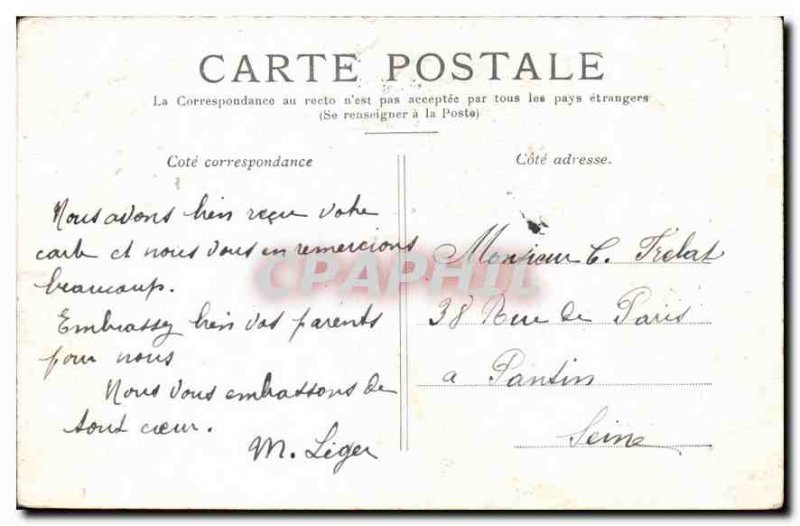 CARTE POSTALE
La Correspondance au recto n'est pas acceptée par tous les pays étrangers
(Se renseigner à la Poste)
Coté correspondance
Côté adresse.
Nous avons bien reçu votre
carte et nous vous en remercions
beaucoup.
Embrassez bien vos parents
pour nous
Nous vous embrassons de
tout cœur.
M. Léger
Monsieur C. Trelat
38 Rue de Paris
a Pantin
Seine
CPAPHIL